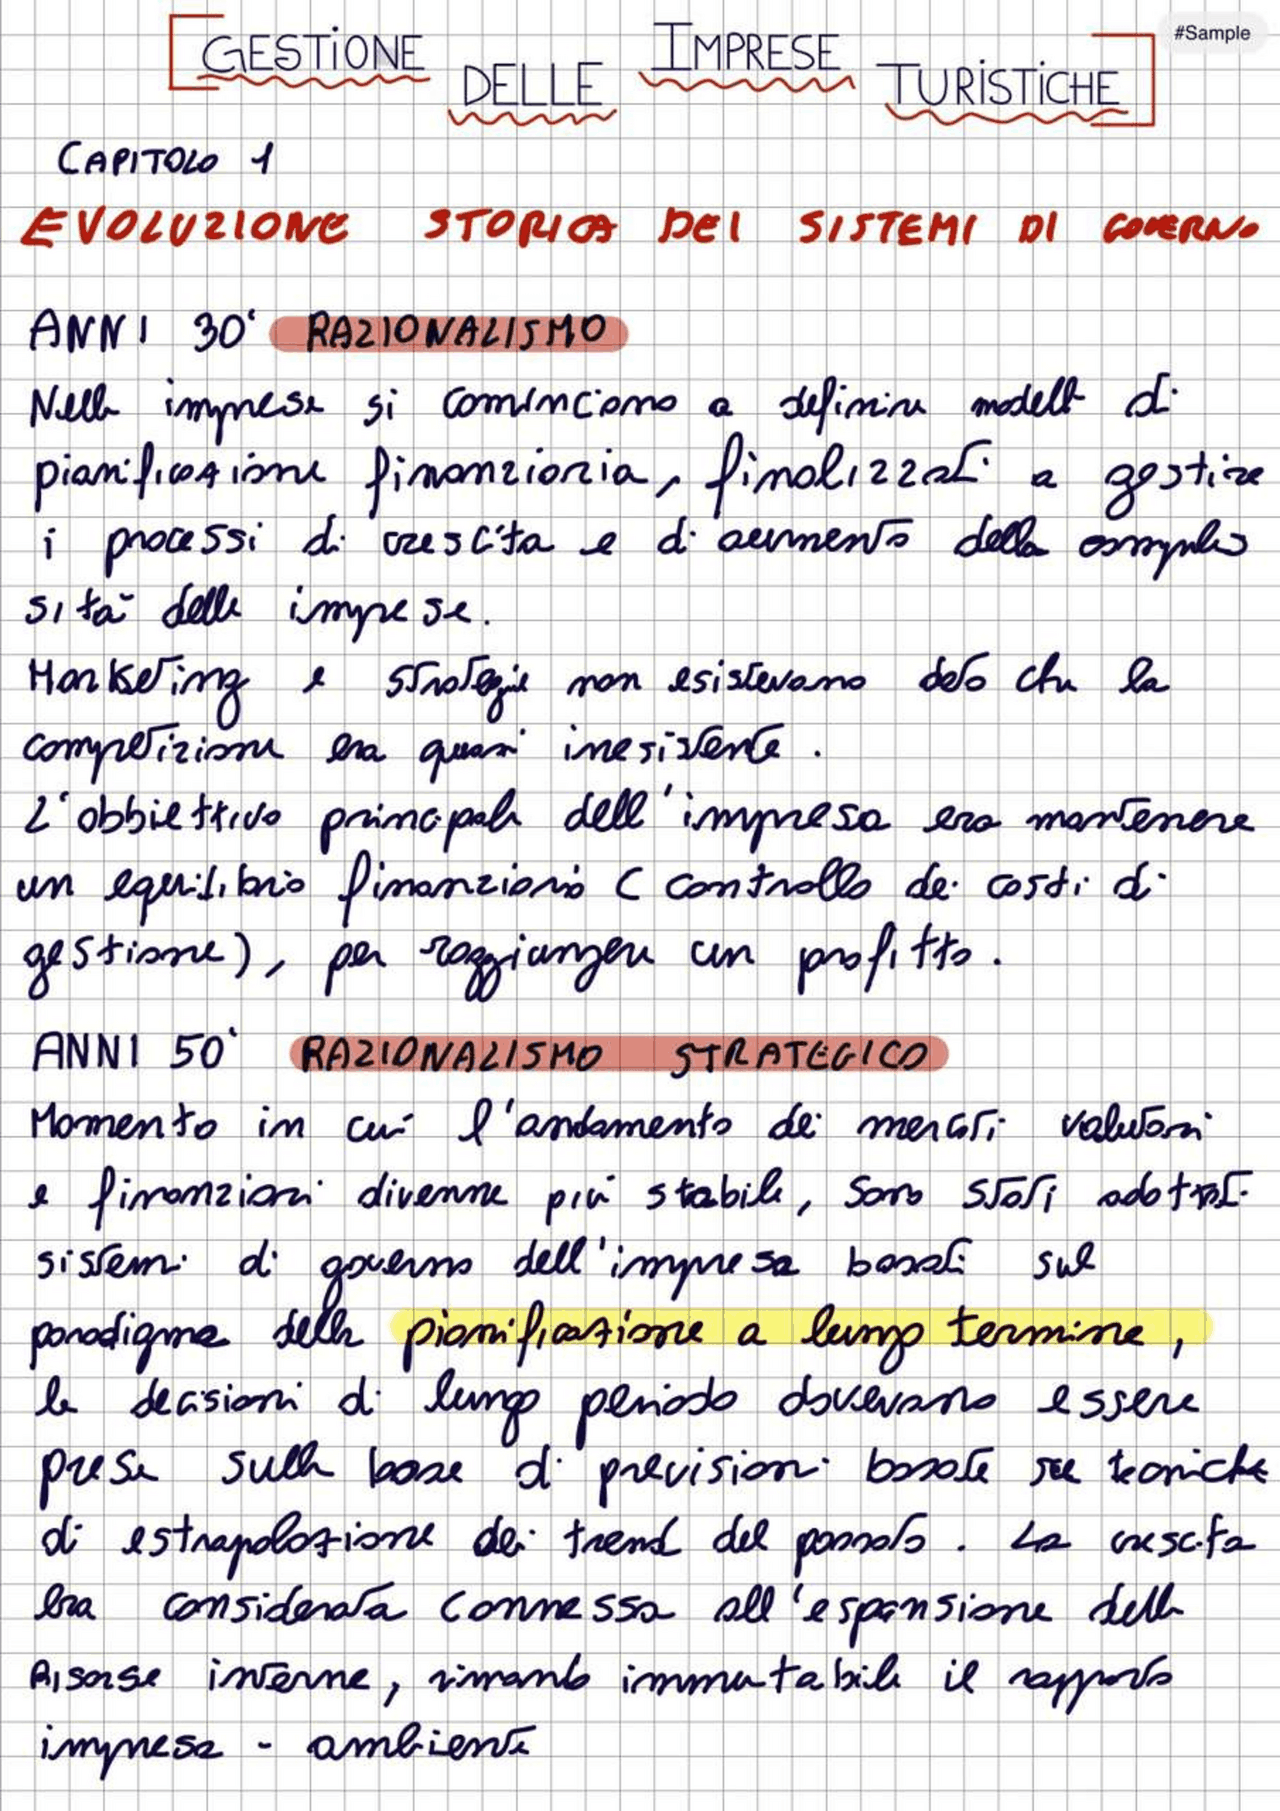 #Sample
GESTIONE DELLE IMPRESE TURISTICHE
CAPITOLO 1
EVOLUZIONE STORICA DEI SISTEMI DI GOVERNO
ANNI 30' RAZIONALISMO
Nelle imprese si cominciano a definire modelli di
pianificazione finanziaria, finalizzati a gestire
i processi di crescita e di aumento della comples
sità delle imprese.
Marketing e strategie non esistevano dato che la
competizione era quasi inesistente.
L'obbiettivo principale dell'impresa era mantenere
un equilibrio finanziario (controllo dei costi di
gestione), per raggiungere un profitto.
ANNI 50' RAZIONALISMO STRATEGICO
Momento in cui l'andamento dei mercati valutari
e finanziari divenne più stabile, sono stati adottati
sistemi di governo dell'impresa basati sul
paradigma della pianificazione a lungo termine,
le decisioni di lungo periodo dovevano essere
prese sulla base di previsioni basate su tecniche
di estrapolazione dei trend del passato. La crescita
era considerata connessa all'espansione delle
Risorse interne, rimanto immutabile il rapporto
impresa - ambiente